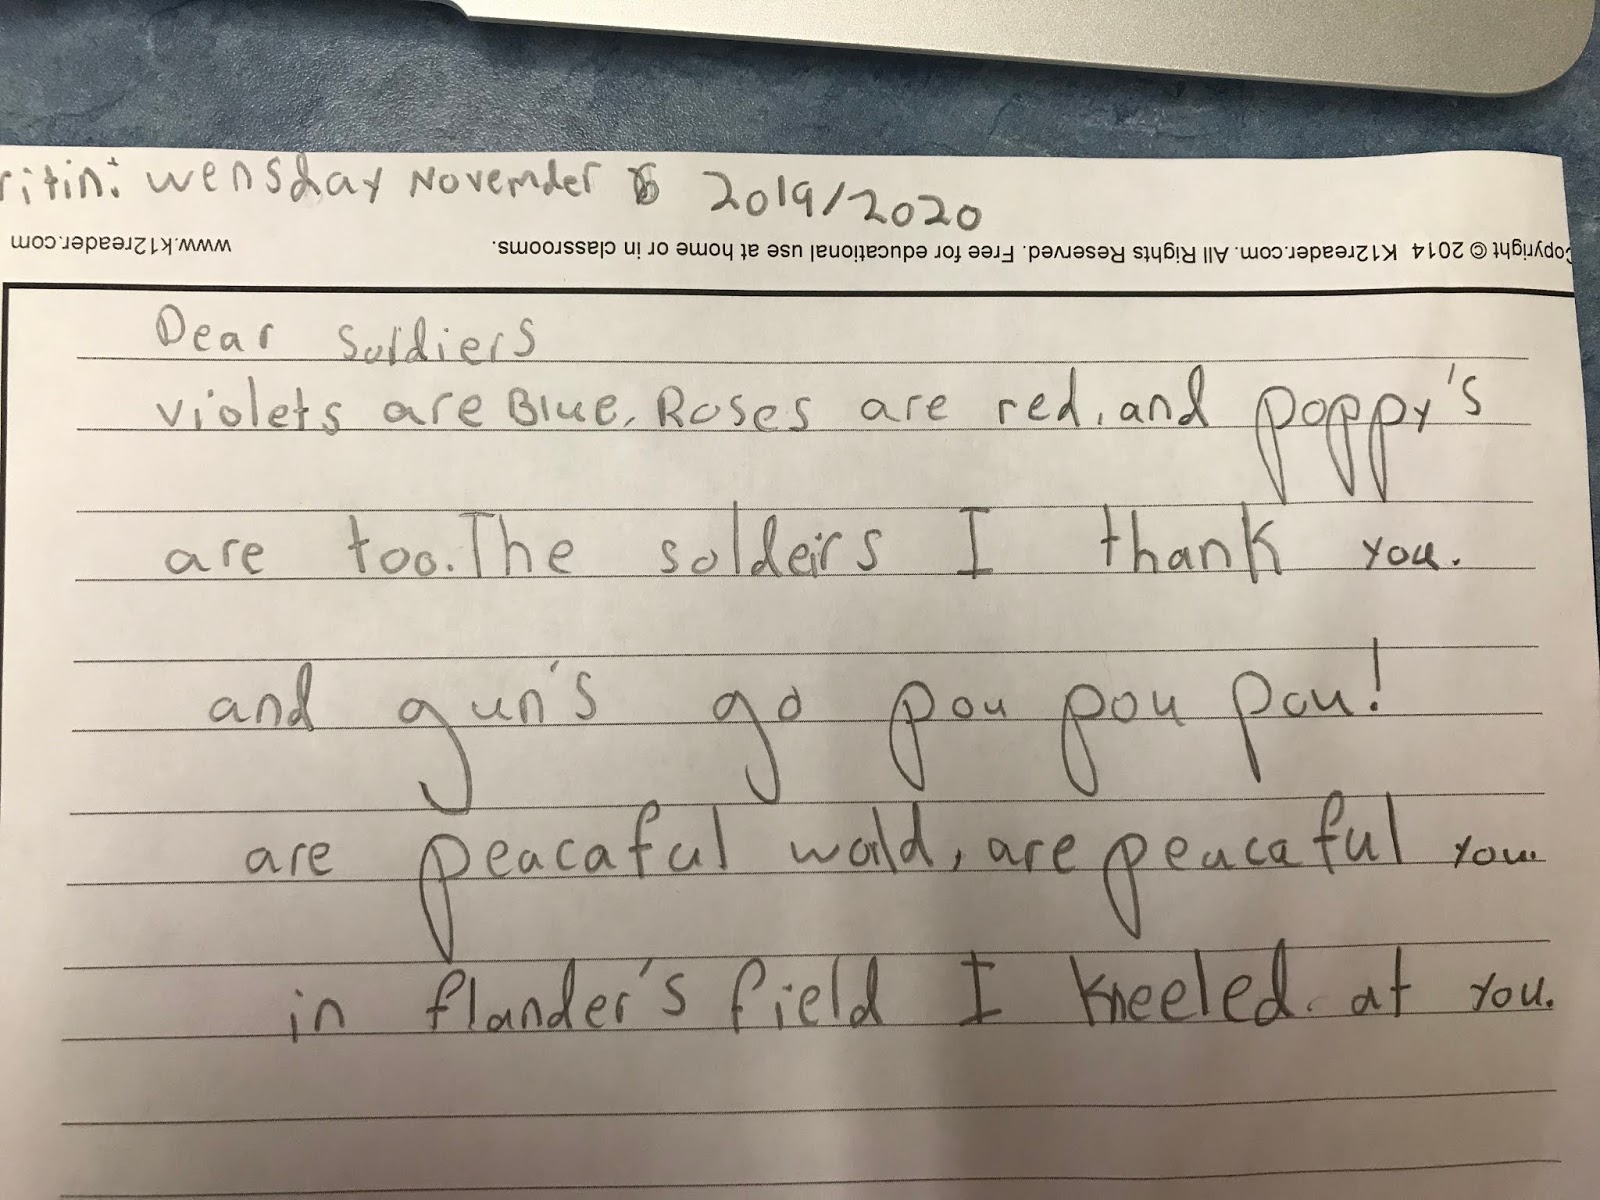 ritin: wensday November 6 2019/2020
Copyright © 2014 K12reader.com. All Rights Reserved. Free for educational use at home or in classrooms. www.k12reader.com
Dear Soldiers
violets are Blue, Roses are red, and poppy's
are too. The soldeirs I thank you.
and gun's go pou pou pou!
are peacaful world, are peacaful you.
in flander's field I kneeled. at you.